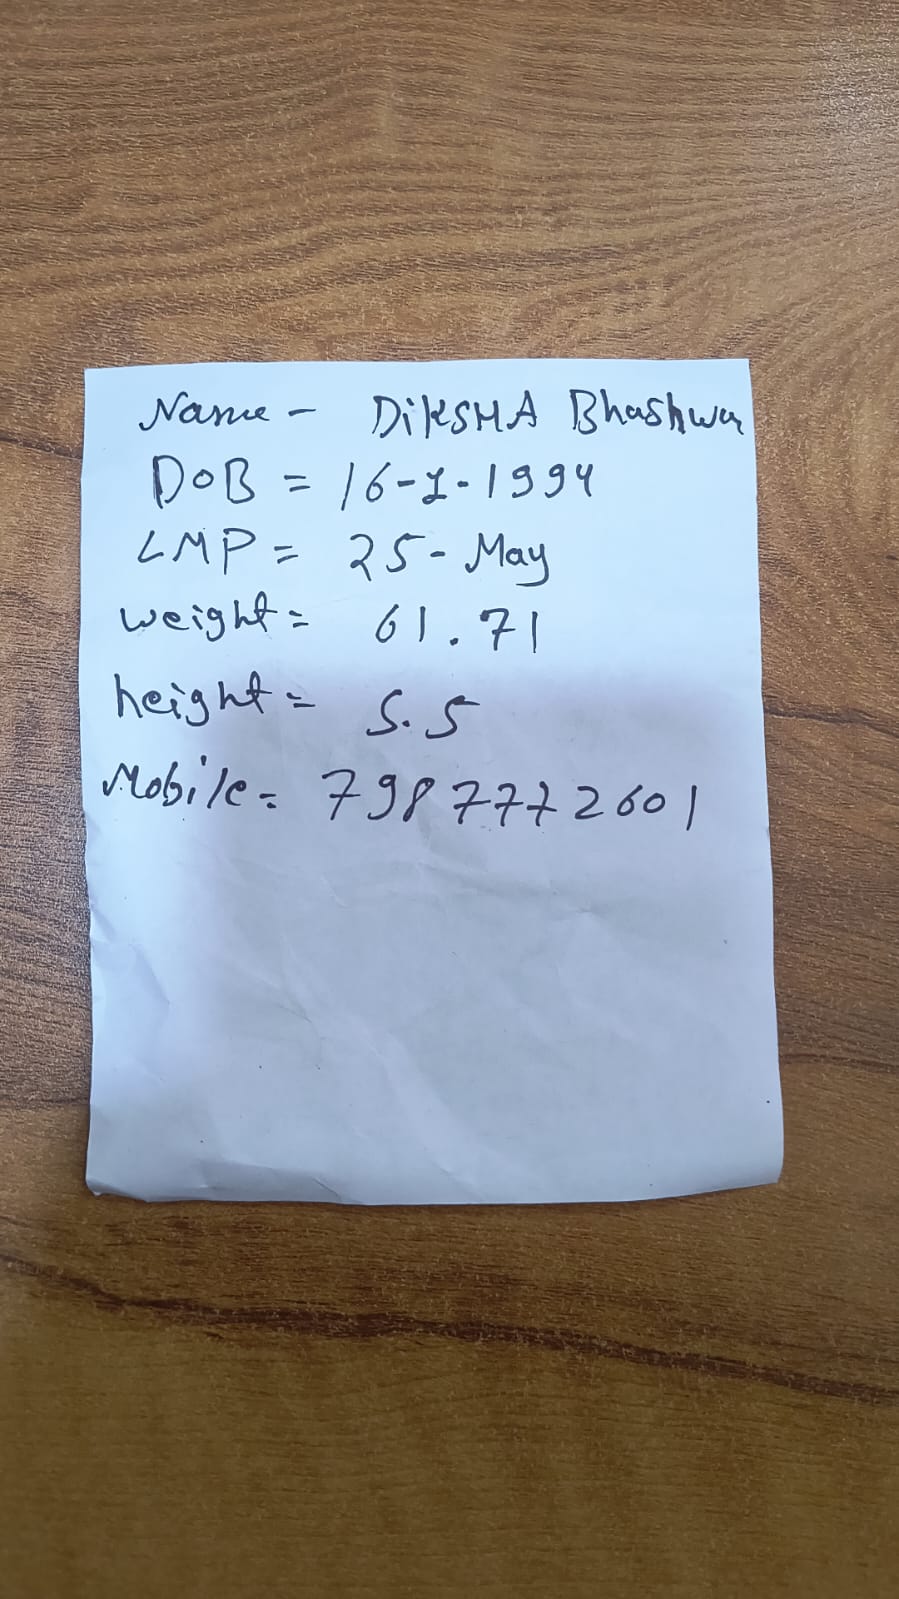 Name - DiKSHA Bhashwar
DOB = 16-1-1994
LMP = 25- May
weight = 61.71
height = 5.5
Mobile = 7987772601